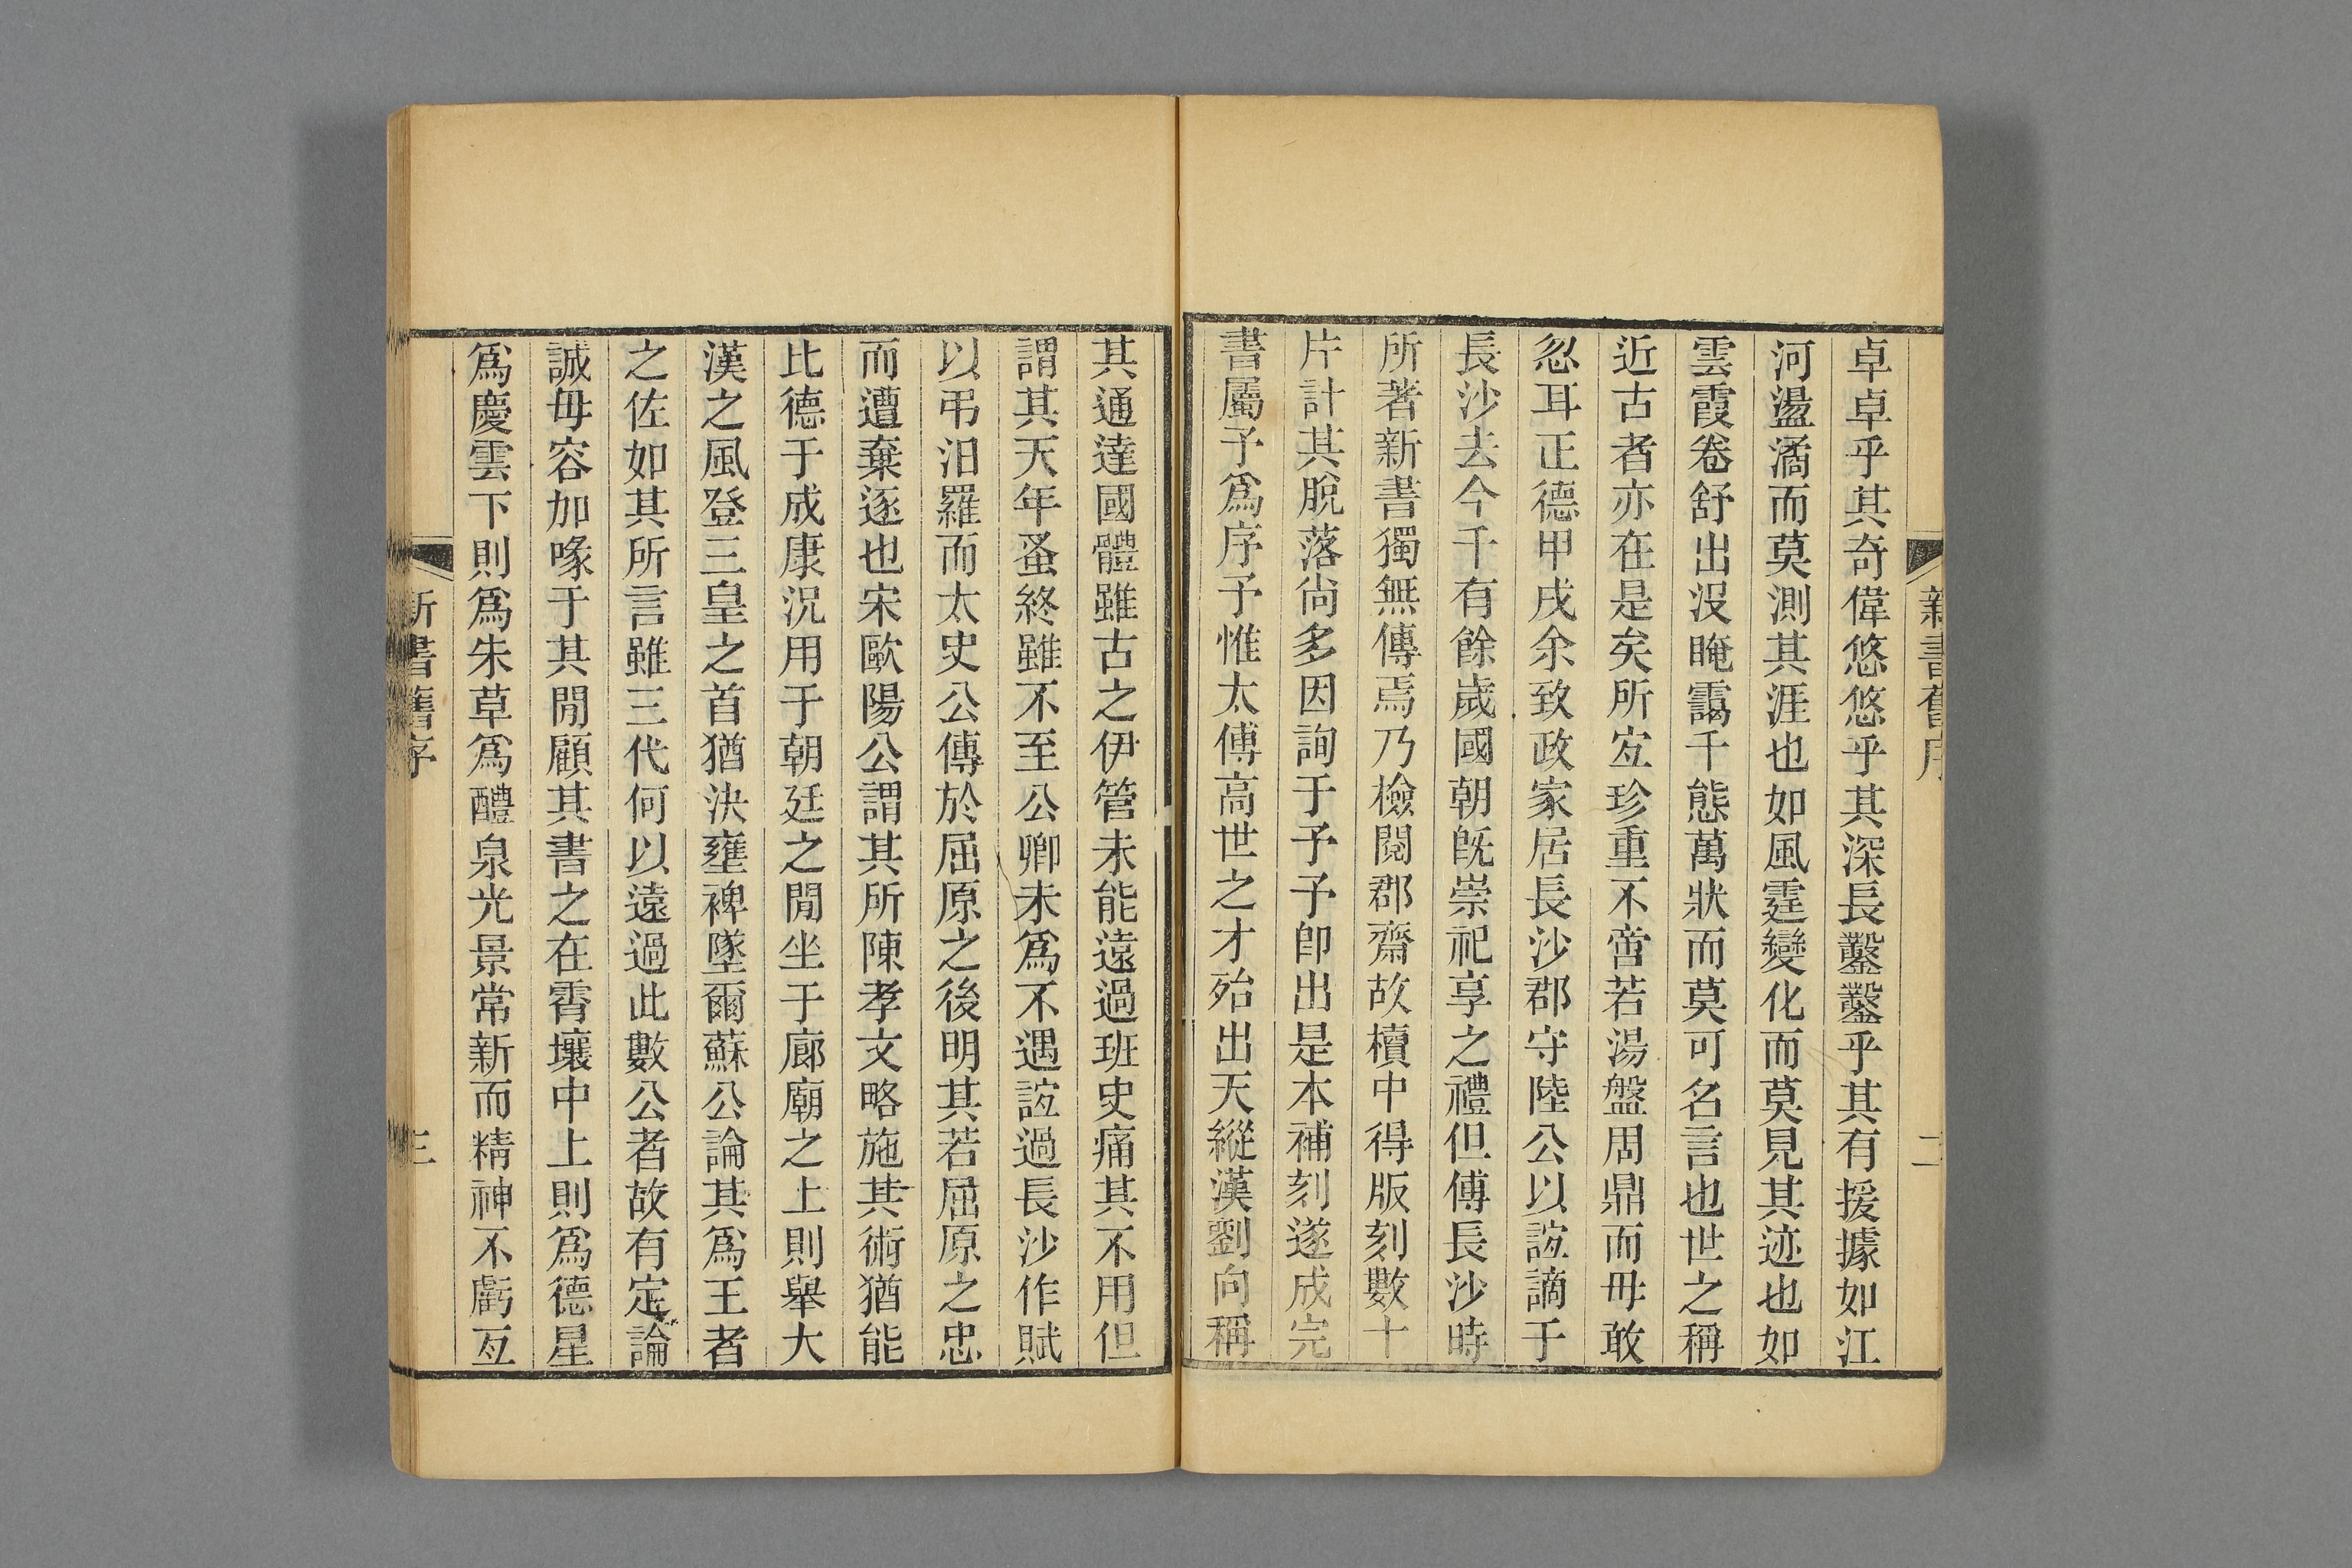 新書舊序
二
卓卓乎其奇偉悠悠乎其深長鑿鑿乎其有援據如江
河盪潏而莫測其涯也如風霆變化而莫見其迹也如
雲霞卷舒出沒晻靄千態萬狀而莫可名言也世之稱
近古者亦在是矣所宐珍重不啻若湯盤周鼎而毋敢
忽耳正德甲戌余致政家居長沙郡守陸公以誼謫于
長沙去今千有餘歲國朝旣崇祀享之禮但傅長沙時
所著新書獨無傳焉乃檢閱郡齋故櫝中得版刻數十
片計其脫落尙多因詢于予予卽出是本補刻遂成完
書屬予爲序予惟太傅高世之才殆出天縱漢劉向稱
其通達國體雖古之伊管未能遠過班史痛其不用但
謂其天年蚤終雖不至公卿未爲不遇誼過長沙作賦
以弔汨羅而太史公傳於屈原之後明其若屈原之忠
而遭棄逐也宋歐陽公謂其所陳孝文略施其術猶能
比德于成康況用于朝廷之閒坐于廊廟之上則舉大
漢之風登三皇之首猶決壅裨墜爾蘇公論其爲王者
之佐如其所言雖三代何以遠過此數公者故有定論
誠毋容加喙于其閒顧其書之在霄壤中上則爲德星
爲慶雲下則爲朱草爲醴泉光景常新而精神不虧亙
新書舊序
三